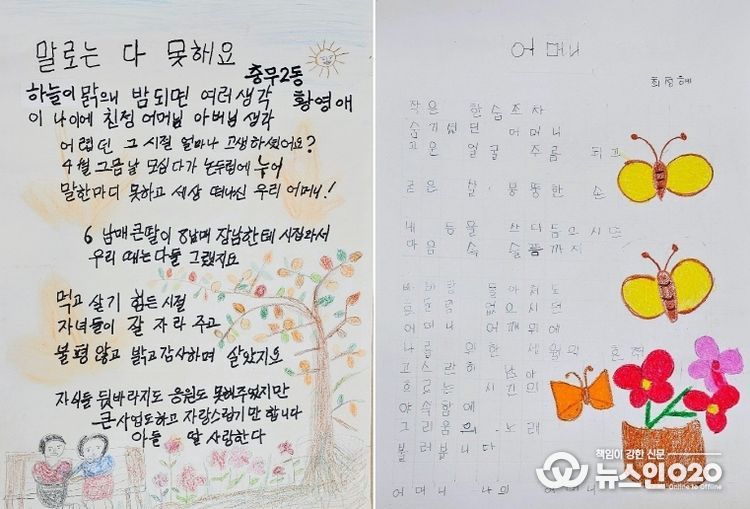 말로는 다 못해요
충무2동
황영애
하늘이 맑으니 밤되면 여러생각
이 나이에 친정 어머님 아버님 생각
어렵던 그 시절 얼마나 고생하셨어요?
4월 그믐날 모심다가 논두렁에 누어
말한마디 못하고 세상 떠나신 우리 어머니!
6남매 큰딸이 8남매 장남한테 시집와서
우리 때는 다들 그랬지요
먹고 살기 힘든 시절
자녀들이 잘 자라 주고
불평 않고 밝고 감사하며 살았지요
자식들 뒷바라지도 응원도 못해주었지만
큰 사업도하고 자랑스럽기만 합니다
아들 딸 사랑한다
어머니
최정혜
작은 한숨조차
숨기셨던 어머니
고운 얼굴 주름 되고
굽은 살, 뭉툭한 손
내 등을 쓰다듬으시면
마음 속 슬픔까지
비바람 몰아쳐도
흔들림 없으시던
어머니 어깨위에
나를 위한 세월의 흔적
고스란히 남아
흐르는 시간의
야속함에
그리움의 노래
불러봅니다
어머니 나의 어머니
책임이 강한 신문
뉴스인020
Online to Offline